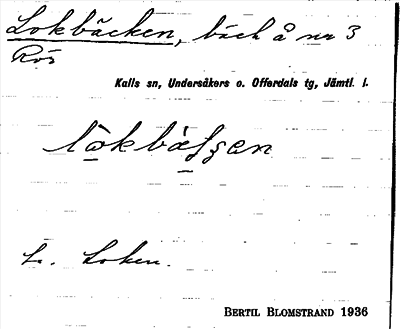 Lokbäcken, bäck å nr 3
Rör
Kalls sn, Undersåkers o. Offerdals tg, Jämtl. l.
L. Loken.
BERTIL BLOMSTRAND 1936